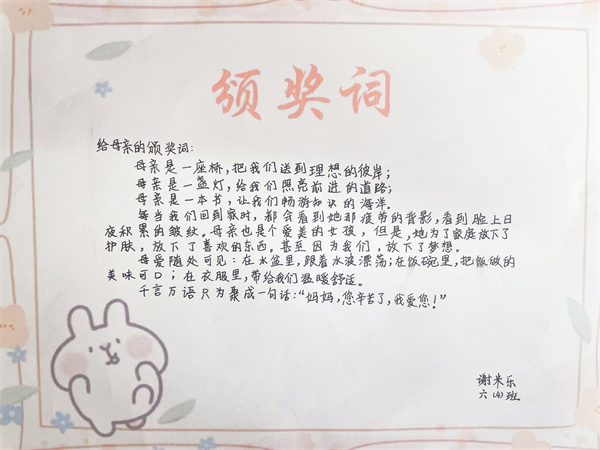 颁奖词
给母亲的颁奖词:
母亲是一座桥,把我们送到理想的彼岸;
母亲是一盏灯,给我们照亮前进的道路;
母亲是一本书,让我们畅游知识的海洋。
每当我们回到家时,都会看到她那疲劳的背影,看到脸上日
夜积累的皱纹。母亲也是个爱美的女孩,但是,她为了家庭放下了
护肤,放下了喜欢的东西。甚至因为我们,放下了梦想。
母爱随处可见:在水盆里,跟着水波漂荡;在饭碗里,把饭做的
美味可口;在衣服里,带给我们温暖舒适。
千言万语只为聚成一句话:“妈妈,您辛苦了,我爱您!”
谢米乐
六(4)班